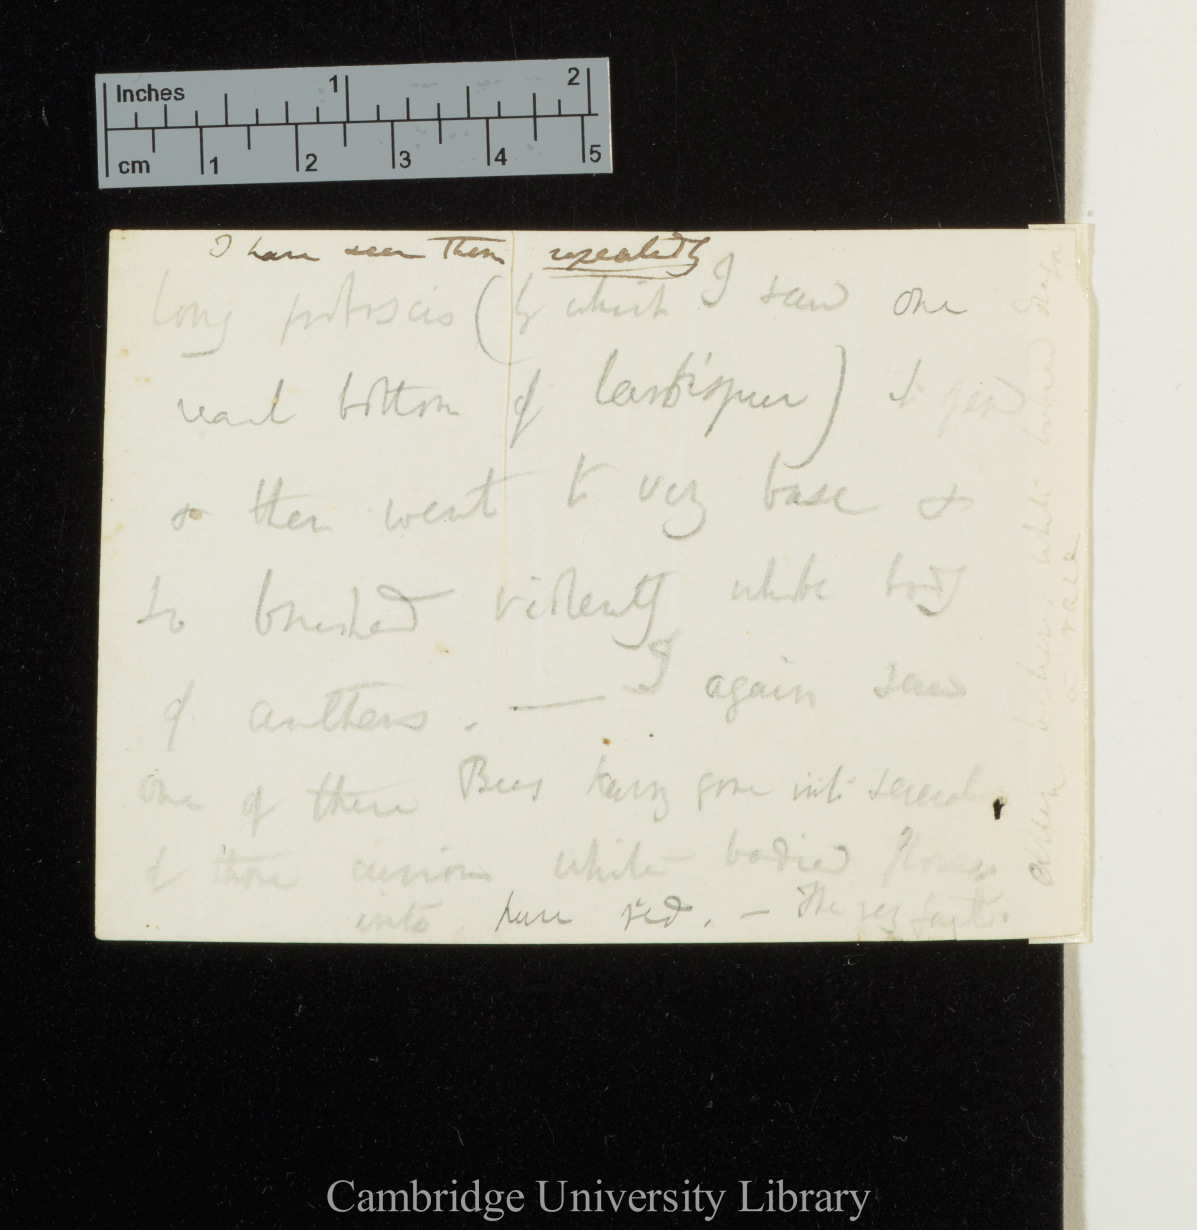 Inches 1 2
cm 1 2 3 4 5
I have seen them repeatedly
long proboscis (by which I saw one
reach bottom of larkspur)
& then went to very base &
so brushed violently white body
of anthers. — I again saw
one of these Bees having gone into several
of those curious white bodied flowers
into pure red. — The very
Cambridge University Library